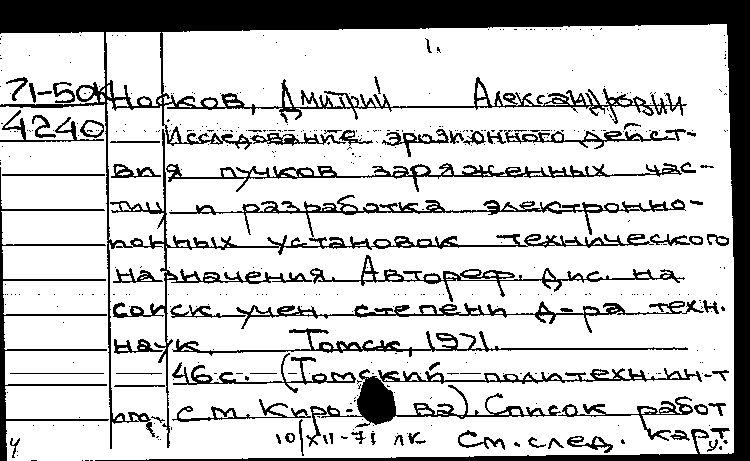 1.
71-50к Носков, Дмитрий Александрович
4240 Исследование эрозионного дейст-
вия пучков заряженных час-
тиц и разработка электронно-
ионных установок технического
назначения. Автореф. дис. на
соиск. учен. степени д-ра техн.
наук. Томск, 1971.
46 с. (Томский политехн. ин-т
им. С.М. Киро-ва). Список работ
10/XII-71 лк См. след. карт